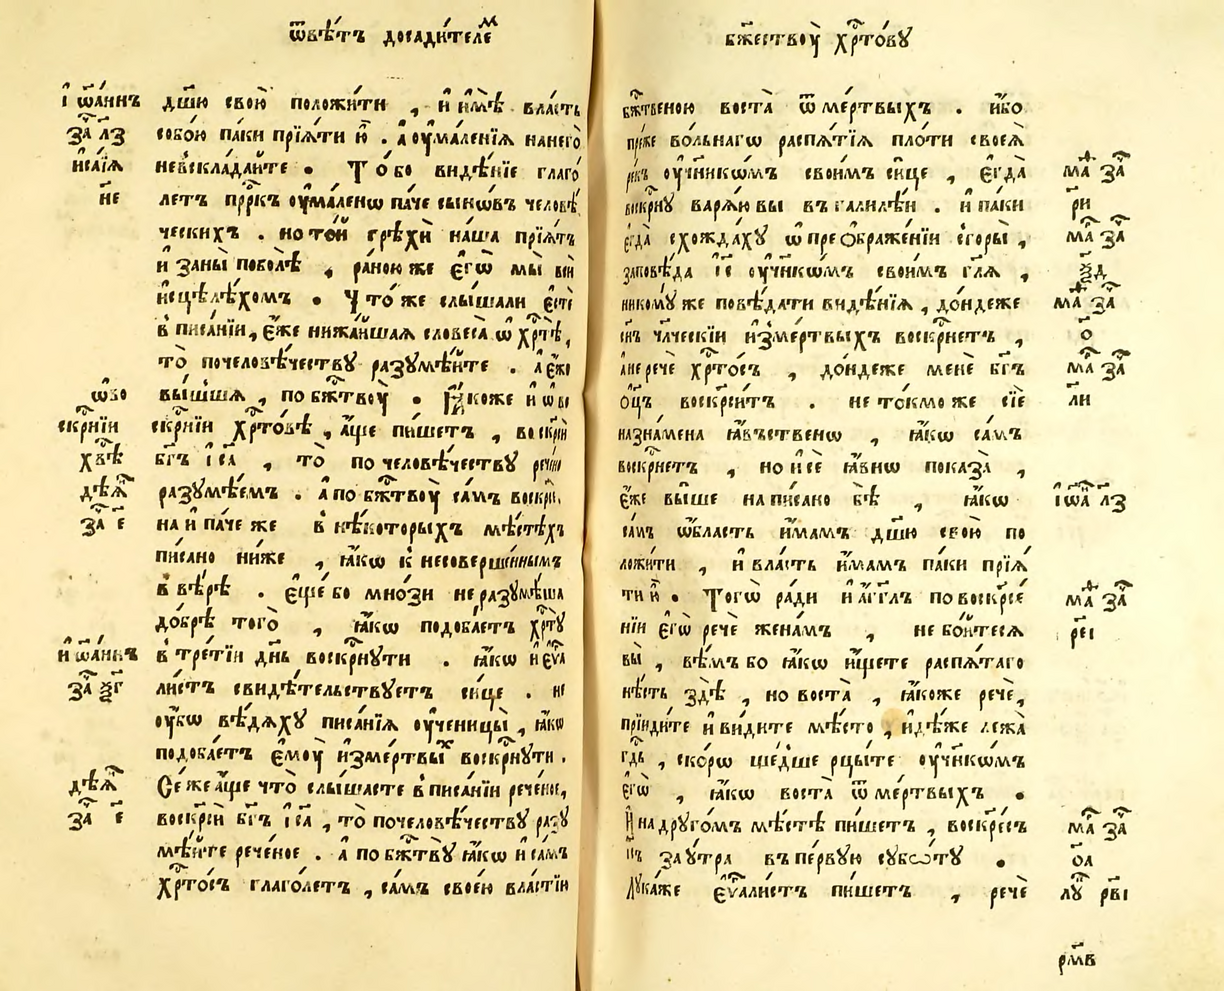 ѿвѣ́тъ досади́телемъ
і҆ѡа́ннъ
за҄ л҃з
и҆са́їѧ
н҃е
дш҃ю свою̀ положи́ти , и҆ и҆мѣ̀ вла́сть
собо́ю па́ки прїѧ́ти ю҆̀ . а҆ оу҆мале́нїѧ нанего̀
невскла́дайте . То́ бо видѣ́нїе глаго́
летъ прⷪ҇ркъ оу҆мале́нѡ па́че сынѡ́въ человѣ́
ческихъ . но то́й грѣхѝ на́ша прїѧ́тъ
и҆ за ны̀ поболѣ̀ , ра́ною же є҆гѡ̀ мы̀ вси̑
и҆сцѣлѣ́хомъ . Что́ же слы́шали є҆стѐ
в писа́нїи , є҆́же нижа́йшаѧ словеса̀ ѡ҆ хрⷭ҇тѣ̀ ,
то̀ почеловѣ́честву разумѣ́йте . а҆ є҆́же
вы́шшѧ , по бжⷭ҇твоу̀ . Ꙗ҆́коже и҆ ѡ҆ во
скрⷭ҇нїи хрⷭ҇то́вѣ , а҆́ще пи́шетъ , воскрⷭ҇и́
бг҃ъ і҆са , то̀ по человѣ́честву рече́но
разумѣ́емъ . а҆ по бжⷭ҇твоу̀ са́мъ воскрⷭ҇е,
на и҆ па́че же в нѣ́которыхъ мѣ́стѣхъ
пи́сано ни́же , ꙗ҆́кѡ к несоверше́ннымъ
в вѣ́рѣ . є҆ще́ бо мно́зи не разумѣ́ша
до́брѣ того̀ , ꙗ҆́кѡ подоба́етъ хрⷭ҇ту̀
в тре́тїи дн҃ь воскрⷭ҇нути . ꙗ҆́кѡ и҆ єѵⷢ҇а
ли́стъ свидѣ́тельствуетъ си́це . не
оу҆̀бѡ вѣ́дѧху писа́нїѧ оу҆ченицы̀ , ꙗ҆́кѡ
подоба́етъ є҆моу̀ и҆зме́ртвыхъ воскрⷭ҇нути .
Се́ же а҆́ще что̀ слы́шасте в писа́нїи рече́ное,
воскрⷭ҇и́ бг҃ъ і҆са , то̀ почеловѣ́честву разу
мѣ́йте рече́ное . а҆ по бжⷭ҇тву ꙗ҆́кѡ и҆ са́мъ
хрⷭ҇то́съ глаго́летъ , са́мъ свое́ю вла́стїю
ѡ҆ во
скрⷭ҇нїи
хв҃ѣ
дѣѧ҄
за҄ є҃
и҆ѡа́ннъ
за҄ ѯ҃г
дѣѧ҄
за҄ є҃
бжⷭ҇твоу̀ хрⷭ҇то́ву
бжⷭ҇твеною воста̀ ѿ ме́ртвыхъ . и҆́бо
пре́же во́льнагѡ распѧ́тїѧ пло́ти своеѧ̀
ре́къ оу҆чн҃икѡмъ свои́мъ си́це , є҆гда̀
воскрⷭ҇ну варѧ́ю вы въ галиле́и . и҆ па́ки
є҆гда̀ схожда́ху ѡ҆ преѻбраже́нїи сгоры̀ ,
заповѣ́да і҆с҃ оу҆чн҃икѡмъ свои́мъ гл҃ѧ ,
никому́же повѣ́дати видѣ́нїѧ , до́ндеже
сн҃ъ чл҃ческїи и҆зме́ртвыхъ воскрⷭ҇нетъ ,
а҆не речѐ хрⷭ҇то́съ , до́ндеже менѐ бг҃ъ
ѻ҆ц҃ъ воскрⷭ҇и́тъ . не то́кмо же сїѐ
назна́мена ꙗ҆́вьственѡ , ꙗ҆́кѡ са́мъ
воскрⷭ҇нетъ , но и҆ сѐ ꙗ҆́внѡ показа̀ ,
є҆́же вы́ше напи́сано бѣ̀ , ꙗ҆́кѡ
са́мъ ѡ҆́бласть и҆́мамъ дш҃ю свою̀ по
ложи́ти , и҆ вла́сть и҆́мамъ па́ки прїѧ́
ти ю҆̀ . Тогѡ̀ ра́ди и҆ а҆́гг҃лъ по воскрⷭ҇е́
нїи є҆гѡ̀ речѐ жена́мъ , не бо́йтесѧ
вы̀ , вѣ́мъ бо ꙗ҆́кѡ и҆́щете распѧ́таго
нѣ́сть здѣ̀ , но воста̀ , ꙗ҆́коже речѐ ,
прїиди́те и҆ ви́дите мѣ́сто , и҆дѣ́же лежа̀
гдⷭ҇ь , ско́рѡ ше́дше рцы́те оу҆чн҃икѡ́мъ
є҆гѡ̀ , ꙗ҆́кѡ воста̀ ѿ ме́ртвыхъ .
И҆ на друго́мъ мѣ́стѣ пи́шетъ , воскре́съ
і҆с҃ъ зау́тра въ пе́рвую субѡ́ту .
Лука́же єѵⷢ҇али́стъ пи́шетъ , речѐ
ма҄ за҄
р҃и
ма҄ за҄
ѯ҃д
ма҄ за҄
о҃
ма҄ за҄
л҃и
і҆ѡа҄ л҃з
ма҄ за҄
рє҃і
ма҄ за҄
о҃а
лу҄ рв҃і
рм҃в